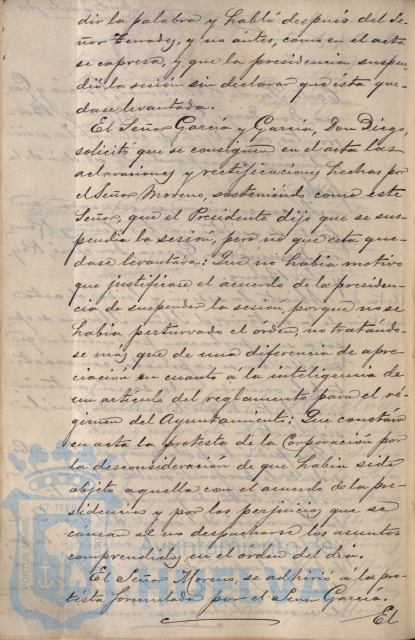 dir la palabra y habló despues del Se-
ñor Terrades, y no ántes, como en el acta
se expresa, y que la presidencia suspen-
dió la sesión sin declarar que ésta que-
dase levantada.
El Señor García y García, Don Diego,
solicitó que se consignen en el acta las
aclaraciones y rectificaciones hechas por
el Señor Moreno, sosteniendo como este
Señor, que el Presidente dijo que se sus-
pendia la sesión, pero no que esta que-
dase levantada: Que no habia motivo
que justificase el acuerdo de la presiden-
cia de suspender la sesion, porque no se
habia perturvado el orden, no tratando-
se más que de una diferencia de apre-
ciación en cuanto á la inteligencia de
un artículo del reglamento para el ré-
gimen del Ayuntamiento: Que constára
en acta la protesta de la Corporación por
la desconsideración de que habia sido
objeto aquella con el acuerdo de la pre-
sidencia y por los perjuicios que se
causan al no despacharse los asuntos
comprendidos en el orden del dia.
El Señor Moreno, se adhirió á la pro-
testa formulada por el Señor García.
El
PORTUS MARIS ET TERRAE
HUELVA